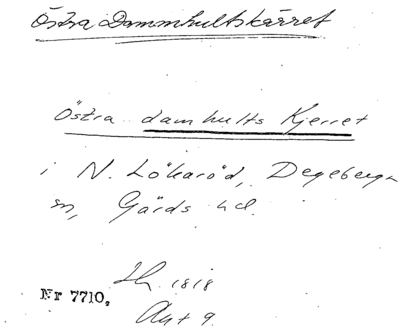 Östra Dammhultskärret
Östra damhults Kjerret
i N. Lökaröd, Degeberga
sn, Gärds hd.
Lh. 1818
Nr 7710.
Akt 9